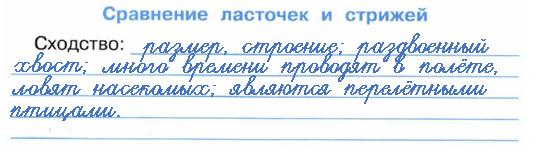 Сравнение ласточек и стрижей
Сходство: размер, строение; раздвоенный
хвост; много времени проводят в полёте,
ловят насекомых; являются перелётными
птицами.